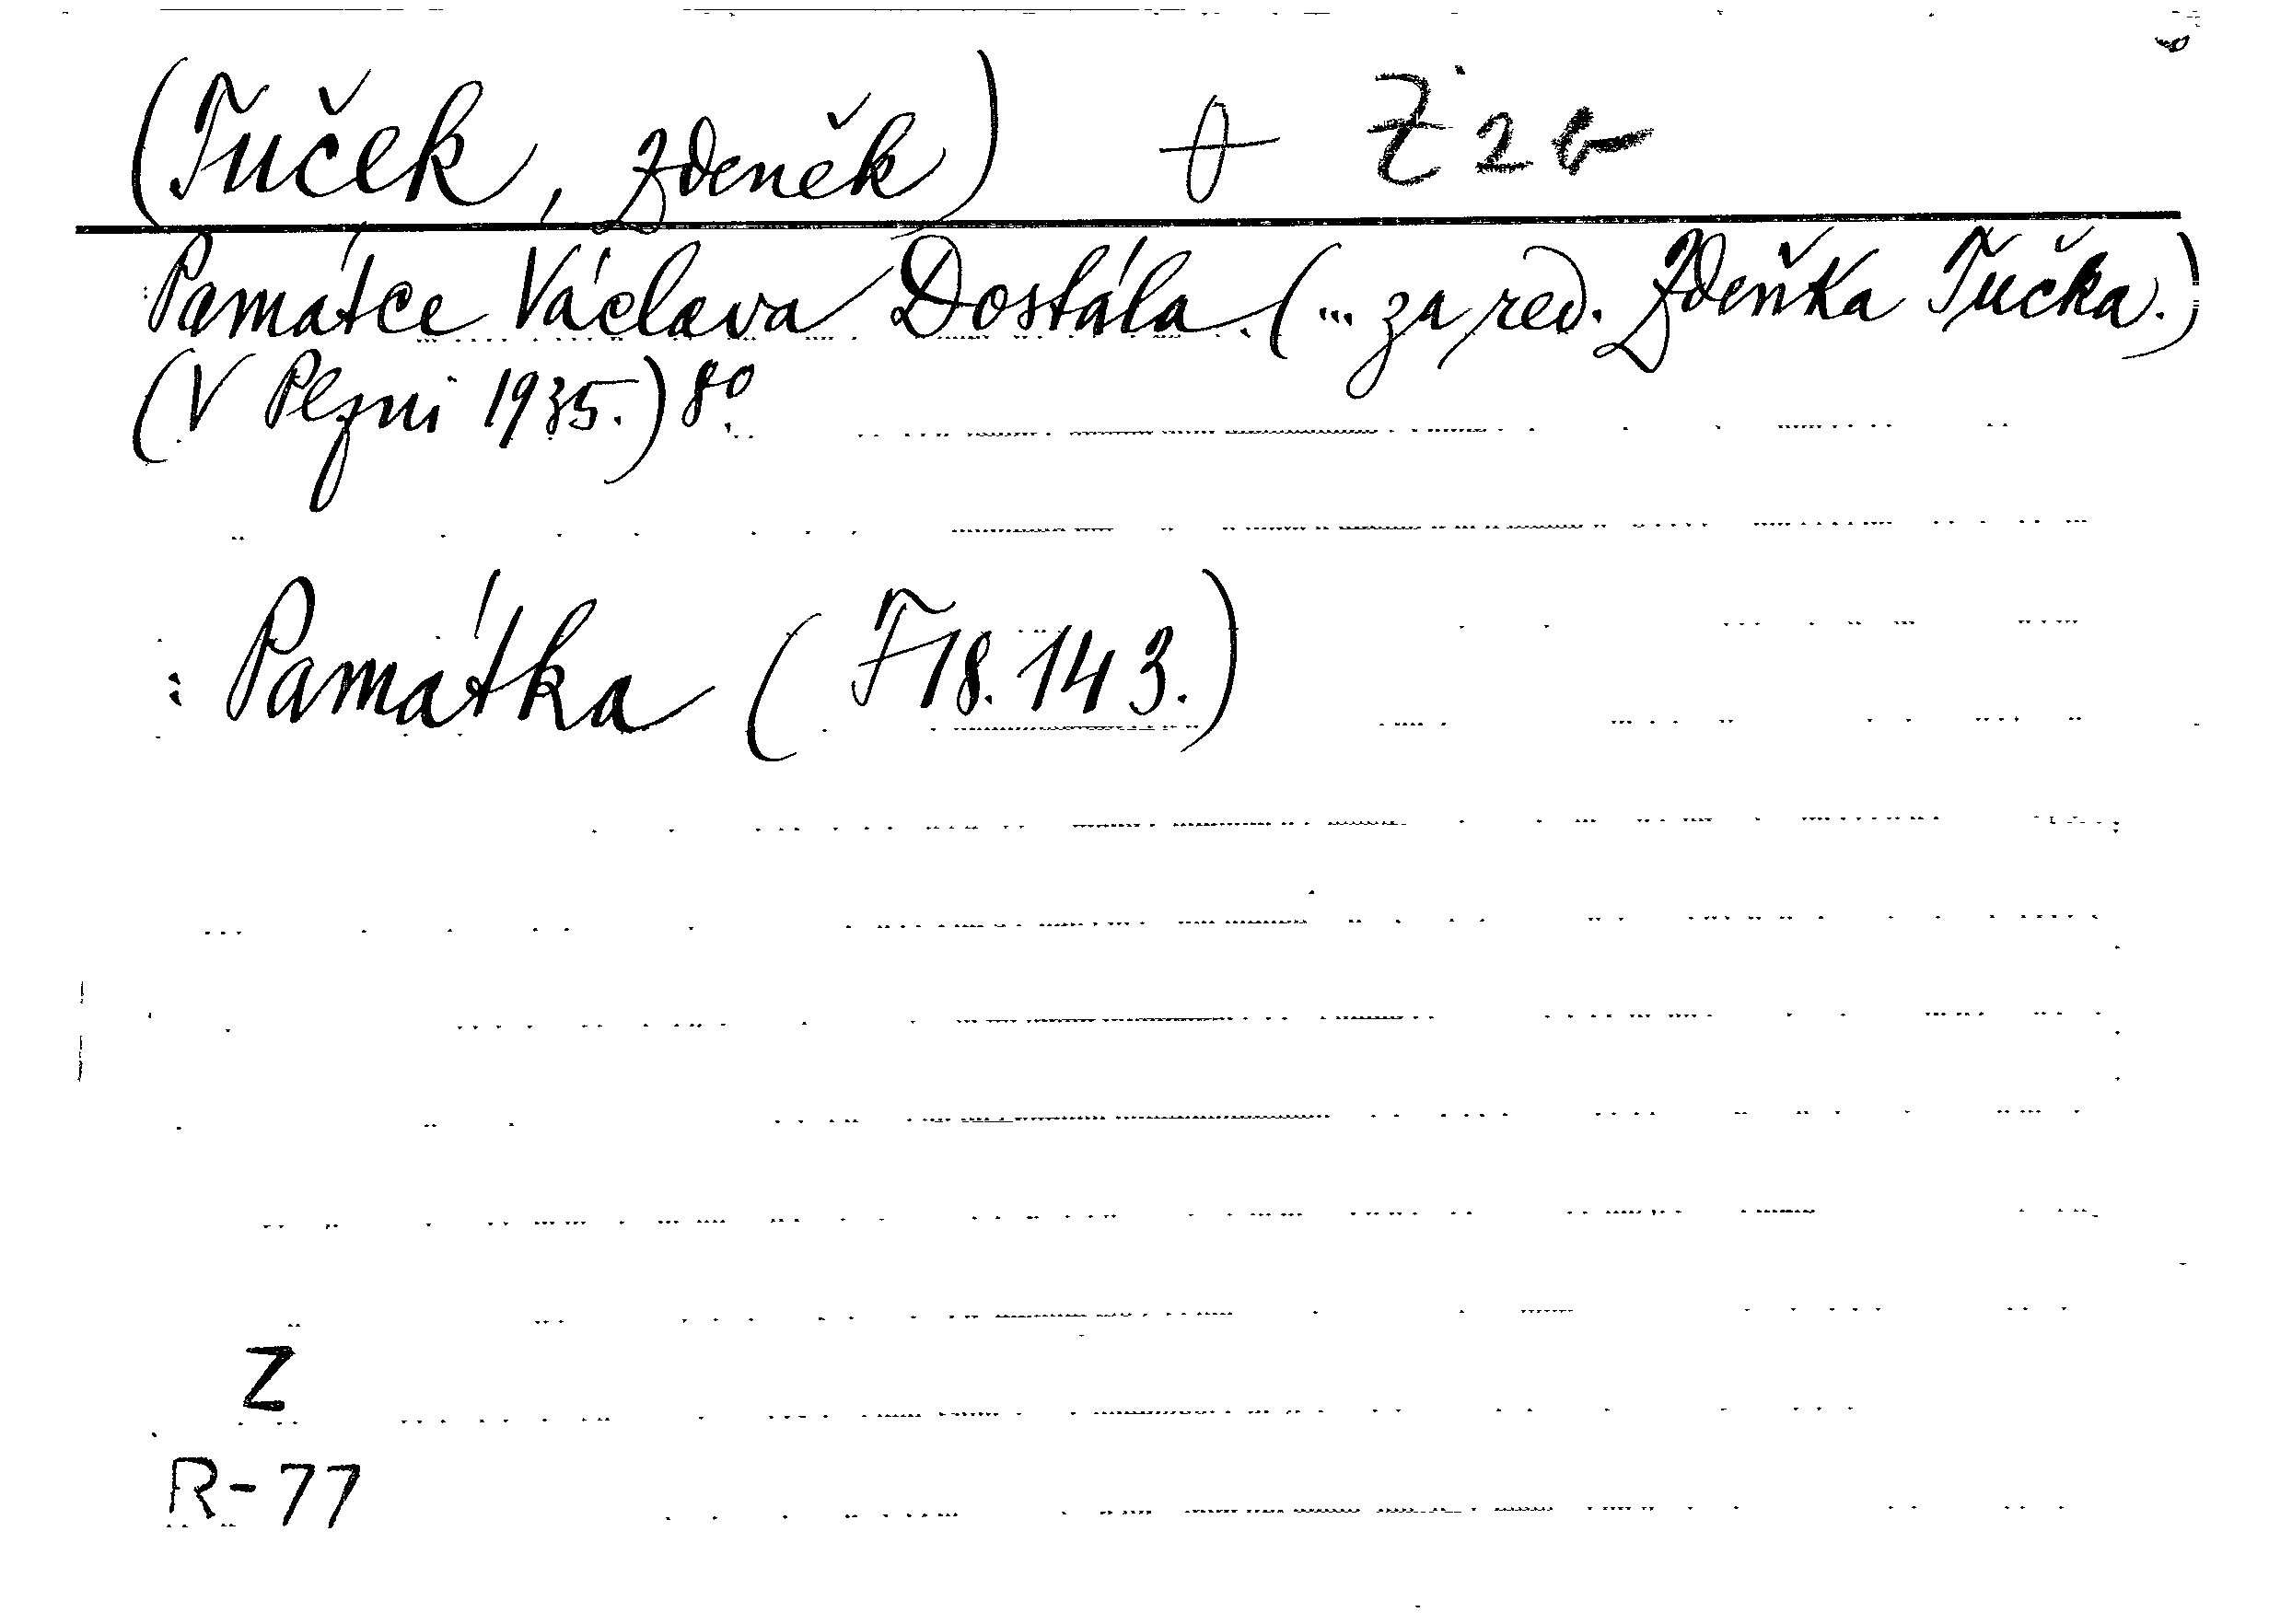 (Tuček, Zdeněk)
Památce Václava Dostála. (... za red. Zdeňka Tučka.)
(V Plzni 1935.) 8º.
: Památka (F 18.143.)
Z
R-77